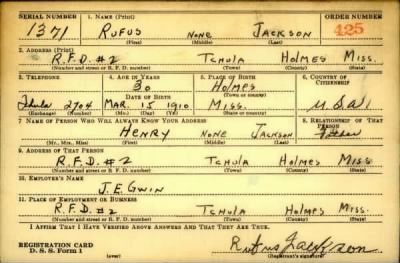 SERIAL NUMBER 1. NAME (Print) ORDER NUMBER
1371 RUFUS NONE JACKSON 425
(First) (Middle) (Last)
2. ADDRESS (Print)
R.F.D. #2 TCHULA HOLMES MISS.
(Number and street or R. F. D. number) (Town) (County) (State)
3. TELEPHONE 4. AGE IN YEARS 5. PLACE OF BIRTH 6. COUNTRY OF CITIZENSHIP
30 HOLMES
DATE OF BIRTH (Town or county)
2704 MAR. 15 1910 MISS. U.S.A.
(Exchange) (Number) (Mo.) (Day) (Yr.) (State or country)
7. NAME OF PERSON WHO WILL ALWAYS KNOW YOUR ADDRESS 8. RELATIONSHIP OF THAT PERSON
HENRY NONE JACKSON Father
(Mr., Mrs., Miss) (First) (Middle) (Last)
9. ADDRESS OF THAT PERSON
R.F.D. #2 TCHULA HOLMES MISS
(Number and street or R. F. D. number) (Town) (County) (State)
10. EMPLOYER'S NAME
J.E. GWIN
11. PLACE OF EMPLOYMENT OR BUSINESS
R.F.D. #2 TCHULA HOLMES MISS.
(Number and street or R. F. D. number) (Town) (County) (State)
I AFFIRM THAT I HAVE VERIFIED ABOVE ANSWERS AND THAT THEY ARE TRUE.
REGISTRATION CARD
D. S. S. Form 1 (over) Rufus Jackson
(Registrant's signature)